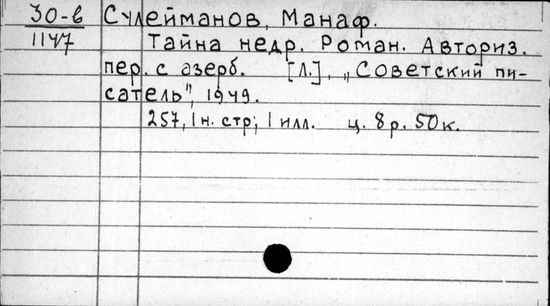 30-в Сулейманов, Манаф.
1147 Тайна недр. Роман. Авториз.
пер. с азерб. [Л.], „Советский пи-
сатель", 1949.
257, 1 н. стр; 1 илл. ц. 8 р. 50 к.